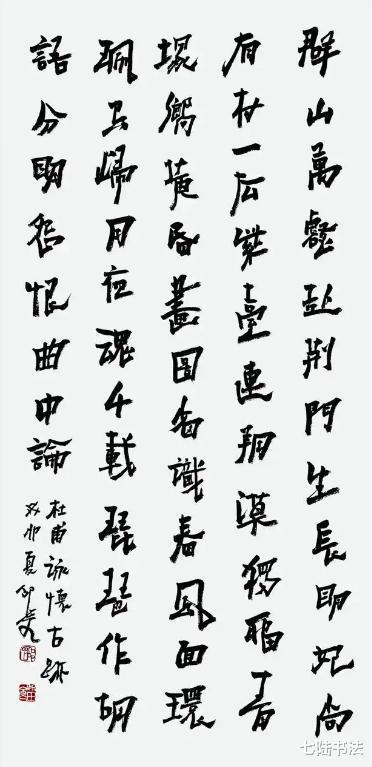 群山萬壑赴荆門生長明妃尚
有村一去紫臺連朔漠獨留青
塚嚮黄昏畫圖省識春風面環
珮空歸月夜魂千載琵琶作胡
語分明怨恨曲中論
杜甫詠懷古跡
癸卯夏
七陆书法